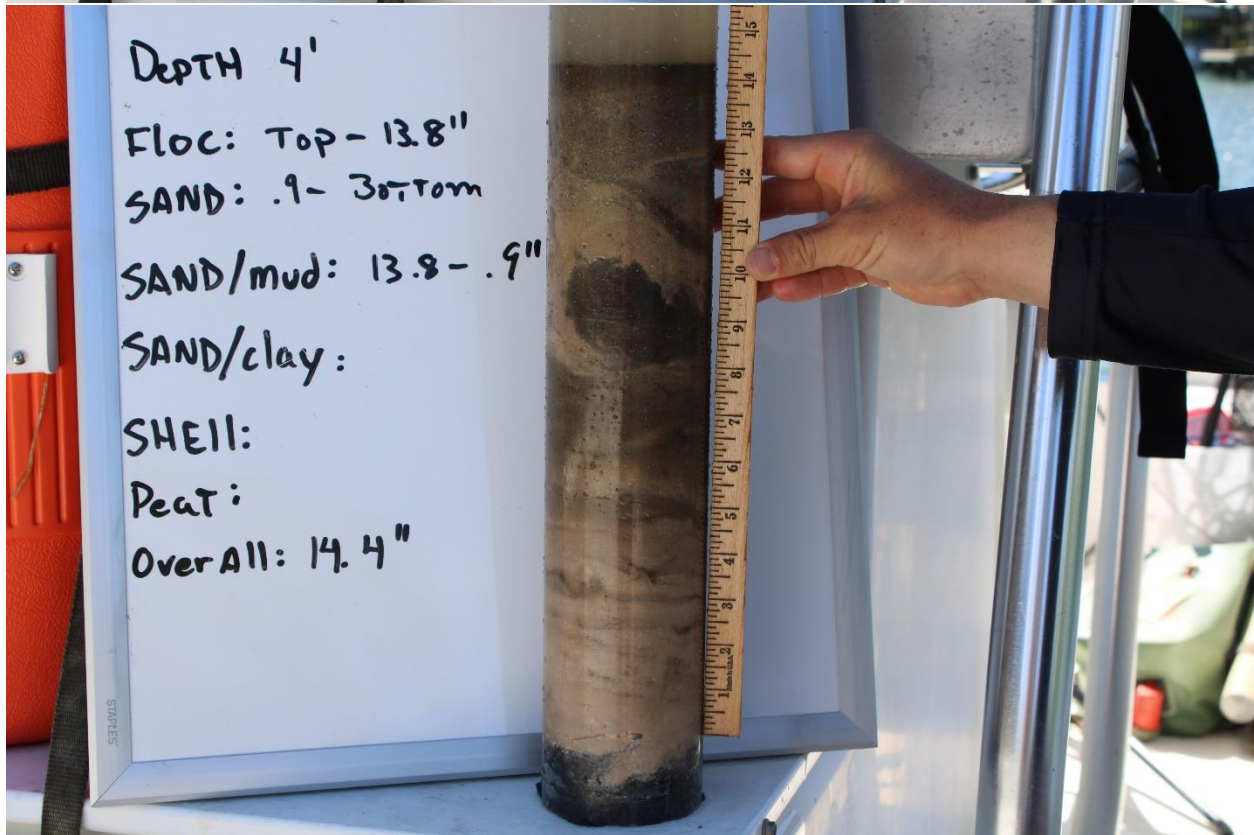 DepTH 4'
Floc: Top - 13.8"
SAND: .9 - BoTTom
SAND/mud: 13.8 - .9"
SAND/clay:
SHEll:
PeaT:
OverAll: 14.4"
STAPLES
15
14
13
12
11
10
9
8
7
6
5
4
3
2
1